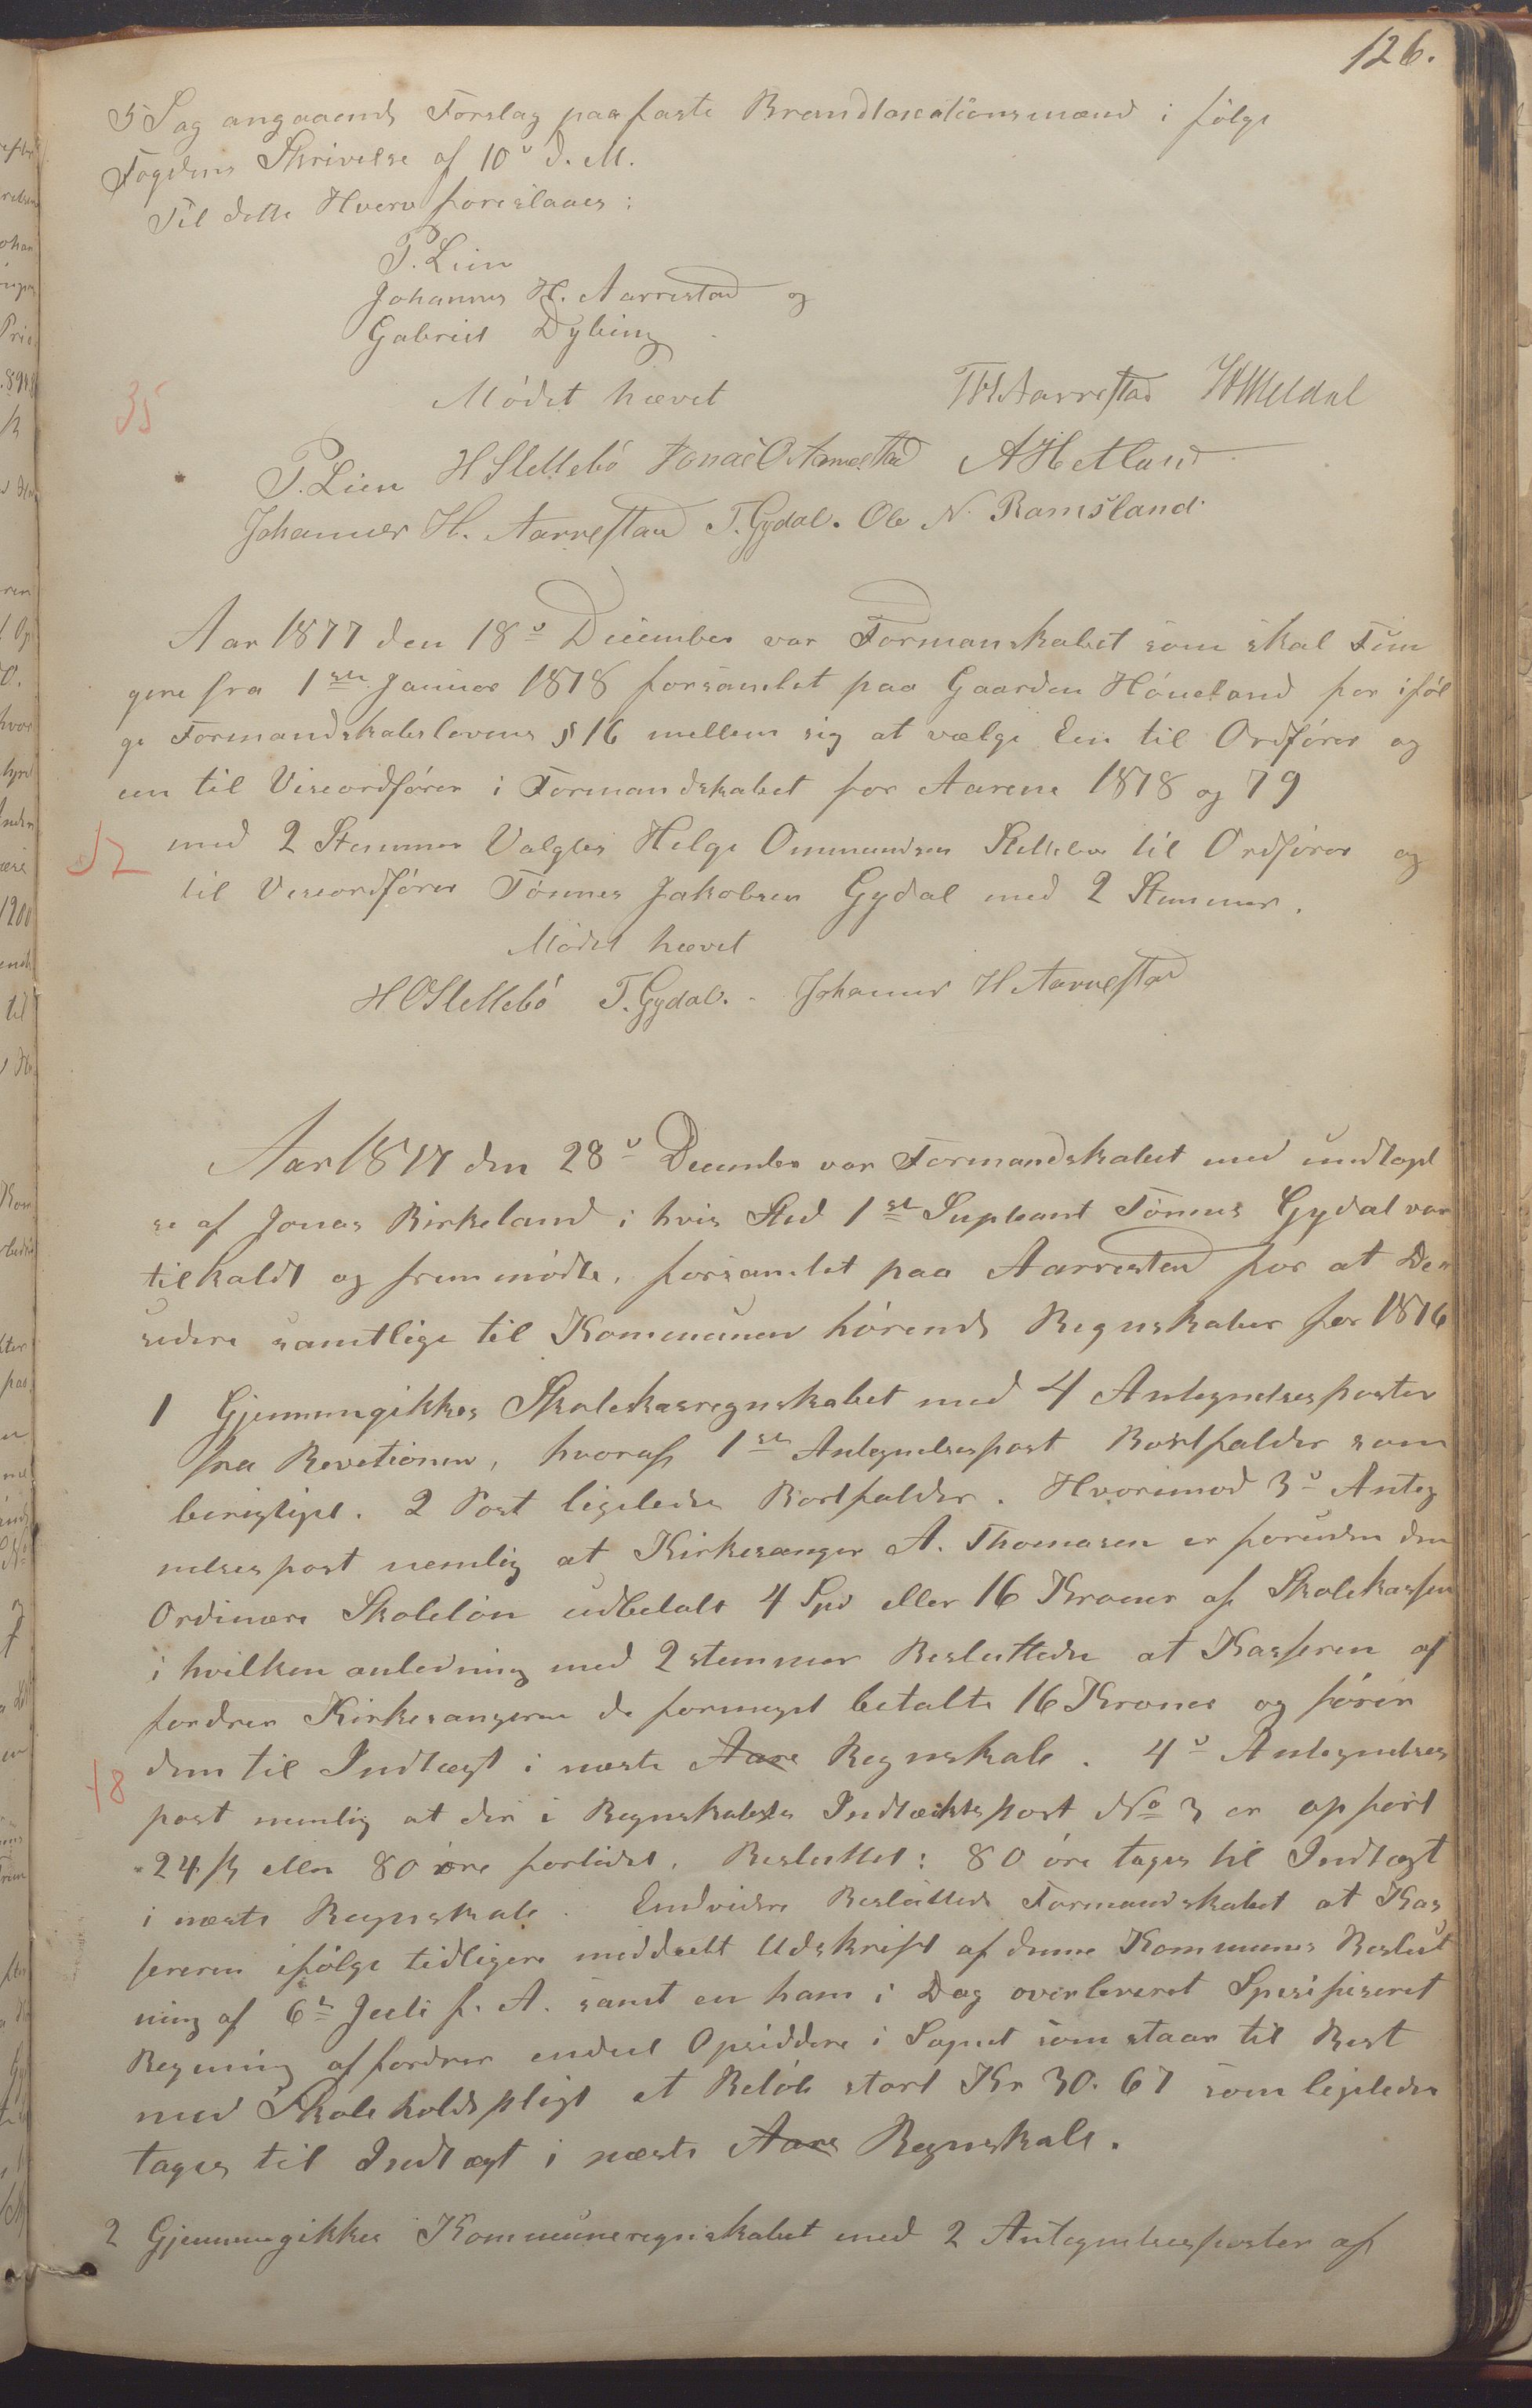 126.
5 Sag angaaende Forslag paa faste Brandtaxationsmænd i følge
Fogdens Skrivelse af 10de d. M.
Til dette Hverv foreslaaes:
P. Lien
Johannes H. Aarrestad og
Gabriel Dybing
Mødet hævet
35
P. Lien H Slettebø Jonas O Aarrestad A Hetland
Johannes H. Aarrestad T. Gydal. Ole N. Ramsland
Aar 1877 den 18de December var Formanskabet som skal Fun
gere fra 1ste Januar 1878 forsamlet paa Gaarden Høneland for iføl
ge Formandskabslovens § 16 mellem sig at vælge Een til Ordfører og
een til Viseordfører i Formandskabet for Aarene 1878 og 79
med 2 Stemmer Valgtes Helge Ommundsen Slettebø til Ordfører og
til Viseordfører Tønnes Jakobsen Gydal med 2 Stemmer.
Mødet hævet
H O Slettebø T. Gydal. Johannes H Aarrestad
Aar 1877 den 28de December var Formandskabet med undtagel
se af Jonas Birkeland i hvis Sted 1ste Supleant Tønnes Gydal var
tilkaldt og fremmødte, forsamlet paa Aarrestad for at De
sidere samtlige til Kommunen hørende Regnskaber for 1876
1 Gjennemgikkes Skolekasregnskabet med 4 Antegnelsesposter
fra Revetionen, hvoraf 1ste Antegnelsespost Bortfalder som
berigtiget. 2 Post ligeledes Bortfalder. Hvorimod 3de Anteg
nelsespost nemlig at Kirkesanger A. Thomasen er foruden den
Ordinære Skoleløn udbetalt 4 Spd eller 16 Kroner af Skolekassen
i hvilken anledning med 2 stemmer Besluttedes at Kasseren af
fordrer Kirkesangeren de formeget betalte 16 Kroner og fører
dem til Indtægt i næste Aars Regnskab. 4de Antegnelses
post nemlig at der i Regnskabets Indtæktspost No 3 er opført
24 ß eller 80 øre forlidet. Besluttet: 80 øre tages til Indtægt
i næste Regnskab. Endvidere Besluttede Formandskabet at Kas
sereren ifølge tidligere meddelt Udskrift af denne Kommunes Beslut
ning af 6te Juli f. A. samt en ham i Dag overleveret Spesifiseret
Regning affordrer endeel Opsiddere i Sognet som staar til Rest
med Skoleholdspligt et Beløb stort Kr 30. 67 som ligeledes
tages til Indtægt i næste Aars Regnskab.
2 Gjennemgikkes Kommuneregnskabet med 2 Antegnelsesposter af